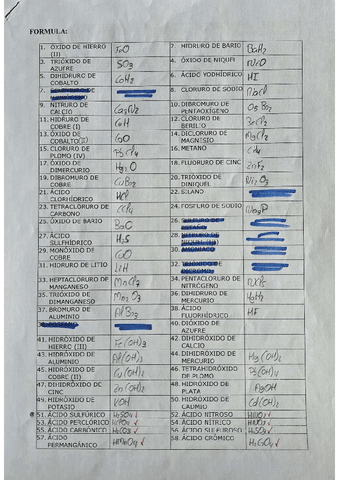 FORMULA:
1. ÓXIDO DE HIERRO (II) FeO
2. HIDRURO DE BARIO BaH2
3. TRIÓXIDO DE AZUFRE SO3
4. ÓXIDO DE NIQUEL NiO
5. DIHIDRURO DE COBALTO CoH2
6. ÁCIDO YODHÍDRICO HI
7.
8. CLORURO DE SODIO NaCl
9. NITRURO DE CALCIO Ca3N2
10. DIBROMURO DE PENTAOXÍGENO O5Br2
11. HIDRURO DE COBRE (I) CuH
12. CLORURO DE BERILIO BeCl2
13. ÓXIDO DE COBALTO(II) CoO
14. DICLORURO DE MAGNESIO MgCl2
15. CLORURO DE PLOMO (IV) PbCl4
16. METANO CH4
17. ÓXIDO DE DIMERCURIO Hg2O
18. FLUORURO DE CINC ZnF2
19. DIBROMURO DE COBRE CuBr2
20. TRIÓXIDO DE DINIQUEL Ni2O3
21. ÁCIDO CLORHÍDRICO HCl
22. SILANO
23. TETRACLORURO DE CARBONO CCl4
24. FOSFURO DE SODIO Na3P
25. ÓXIDO DE BARIO BaO
26.
27. ÁCIDO SULFHÍDRICO H2S
28.
29. MONÓXIDO DE COBRE CuO
30.
31. HIDRURO DE LITIO LiH
32.
33. HEPTACLORURO DE MANGANESO MnCl7
34. PENTACLORURO DE NITRÓGENO NCl5
35. TRIÓXIDO DE DIMANGANESO Mn2O3
36. DIHIDRURO DE MERCURIO HgH2
37. BROMURO DE ALUMINIO AlBr3
38. ÁCIDO FLUORHÍDRICO HI
40. DIÓXIDO DE AZUFRE
41. HIDRÓXIDO DE HIERRO (III) Fe(OH)3
42. DIHIDRÓXIDO DE CALCIO
43. HIDRÓXIDO DE ALUMINIO Al(OH)3
44. DIHIDRÓXIDO DE MERCURIO Hg(OH)2
45. HIDRÓXIDO DE COBRE (II) Cu(OH)2
46. TETRAHIDRÓXIDO DE PLOMO Pb(OH)4
47. DIHIDRÓXIDO DE CINC Zn(OH)2
48. HIDRÓXIDO DE PLATA AgOH
49. HIDRÓXIDO DE POTASIO KOH
50. HIDRÓXIDO DE CADMIO Cd(OH)2
51. ÁCIDO SULFÚRICO H2SO4 ✓
52. ÁCIDO NITROSO HNO2 ✓
53. ÁCIDO PERCLÓRICO HClO4 ✓
54. ÁCIDO NÍTRICO HNO3 ✓
55. ÁCIDO CARBÓNICO H2CO3 ✓
56. ÁCIDO SULFUROSO H2SO3 ✓
57. ÁCIDO PERMANGÁNICO HMnO4 ✓
58. ÁCIDO CRÓMICO H2CrO4 ✓